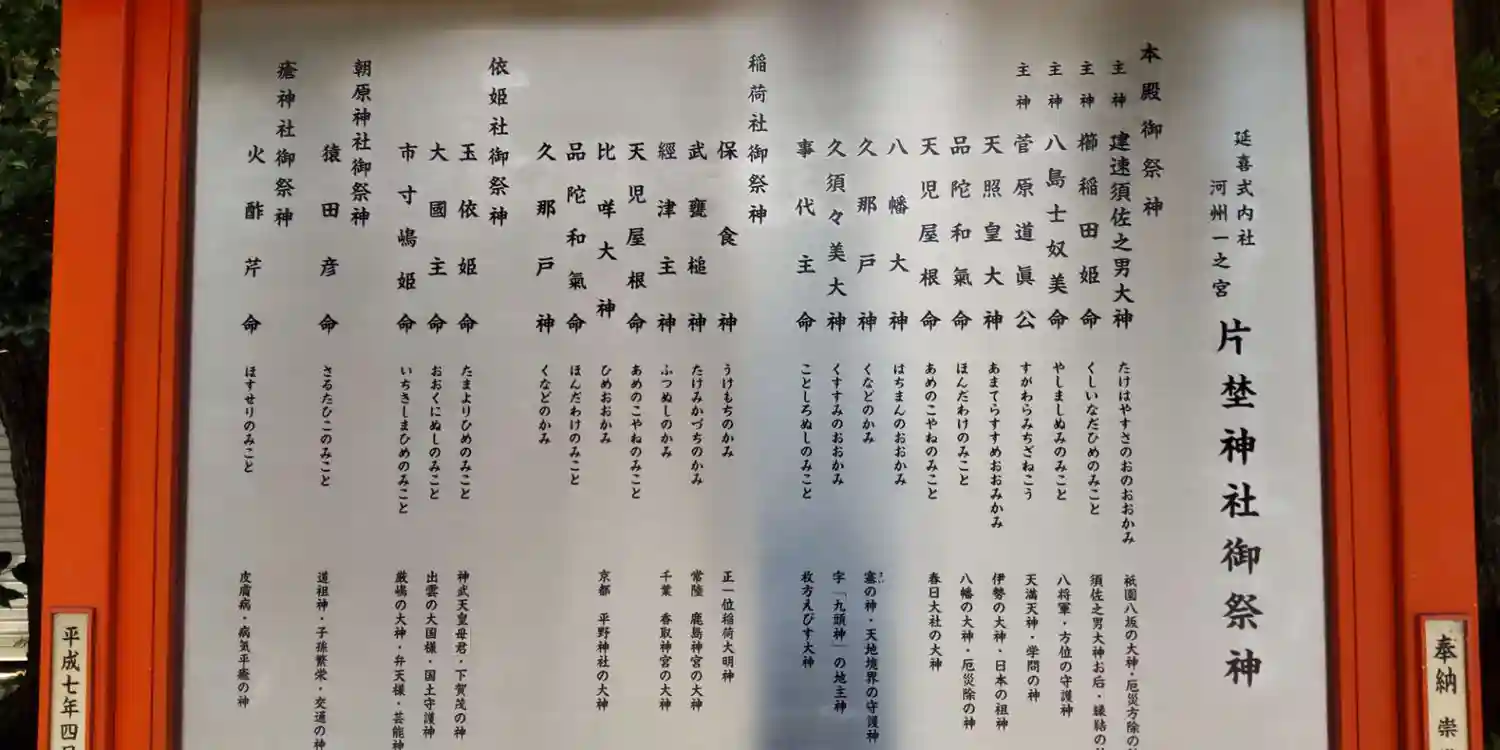 延喜式内社
河州一之宮
片埜神社御祭神
本殿御祭神
主神 建速須佐之男大神 たけはやすさのおのおおかみ 祇園八坂の大神・厄災方除の
主神 櫛稲田姫命 くしいなだひめのみこと 須佐之男大神お后・縁結の
主神 八島士奴美命 やしましぬみのみこと 八将軍・方位の守護神
主神 菅原道眞公 すがわらみちざねこう 天満天神・学問の神
天照皇大神 あまてらすすめおおみかみ 伊勢の大神・日本の祖神
品陀和氣命 ほんだわけのみこと 八幡の大神・厄災除の神
天児屋根命 あめのこやねのみこと 春日大社の大神
八幡大神 はちまんのおおかみ
久那戸神 くなどのかみ 塞の神・天地境界の守護神
さい
久須々美大神 くすすみのおおかみ 字「九頭神」の地主神
事代主命 ことしろぬしのみこと 枚方えびす大神
稲荷社御祭神
保食神 うけもちのかみ 正一位稲荷大明神
武甕槌神 たけみかづちのかみ 常陸 鹿島神宮の大神
經津主神 ふつぬしのかみ 千葉 香取神宮の大神
天児屋根命 あめのこやねのみこと
比咩大神 ひめおおかみ 京都 平野神社の大神
品陀和氣命 ほんだわけのみこと
久那戸神 くなどのかみ
依姫社御祭神
玉依姫命 たまよりひめのみこと 神武天皇母君・下賀茂の神
大國主命 おおくにぬしのみこと 出雲の大国様・国土守護神
市寸嶋姫命 いちきしまひめのみこと 厳嶋の大神・弁天様・芸能神
朝原神社御祭神
猿田彦命 さるたひこのみこと 道祖神・子孫繁栄・交通の神
瘡神社御祭神
火酢芹命 ほすせりのみこと 皮膚病・病気平癒の神
奉納 崇
平成七年四月